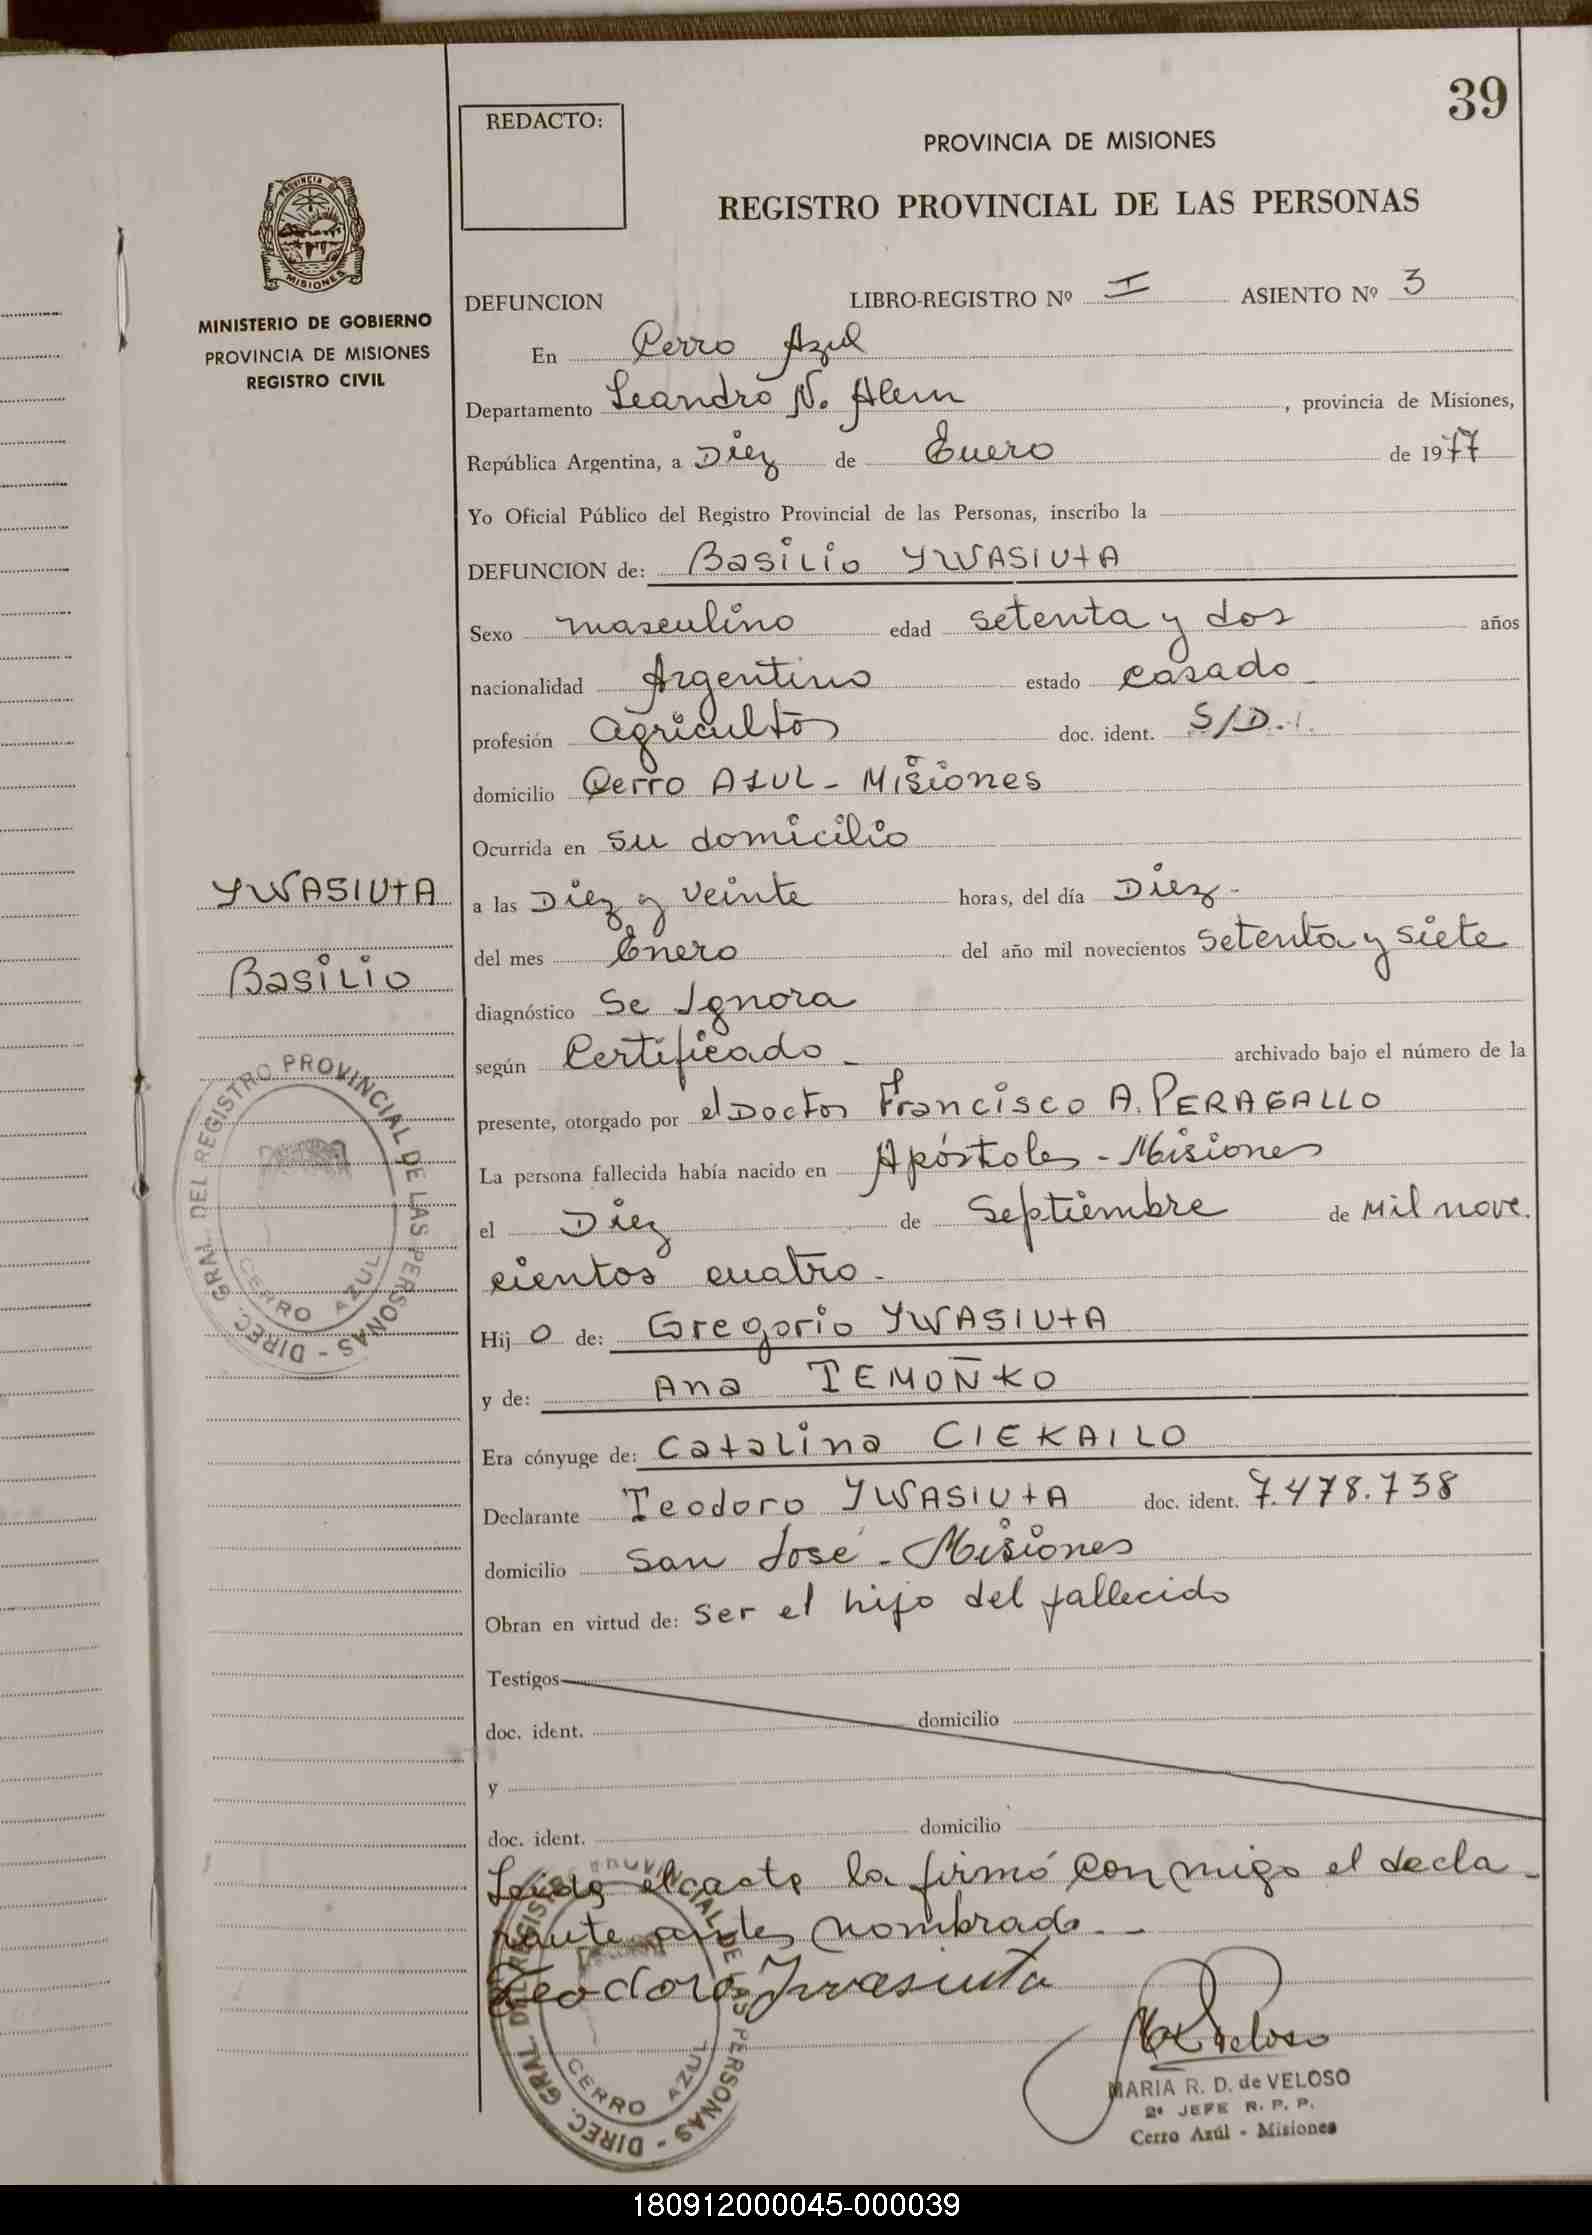 39
REDACTO:
PROVINCIA DE MISIONES
REGISTRO PROVINCIAL DE LAS PERSONAS
PROVINCIA DE
MISIONES
MINISTERIO DE GOBIERNO
PROVINCIA DE MISIONES
REGISTRO CIVIL
DEFUNCION LIBRO-REGISTRO Nº I ASIENTO Nº 3
En Cerro Azul
Departamento Leandro N. Alem, provincia de Misiones,
República Argentina, a Diez de Enero de 1977
Yo Oficial Público del Registro Provincial de las Personas, inscribo la
DEFUNCION de: Basilio YWASIUtA
Sexo masculino edad setenta y dos años
nacionalidad Argentino estado casado
profesión agricultor doc. ident. S/D.
domicilio Cerro AZUL - Misiones
Ocurrida en su domicilio
YWASIUtA
a las Diez y veinte horas, del día Diez-
del mes Enero del año mil novecientos setenta y siete
Basilio
diagnóstico Se Ignora
según Certificado - archivado bajo el número de la
presente, otorgado por el Doctor Francisco A. PERAGALLO
La persona fallecida había nacido en Apóstoles - Misiones
el Diez de Septiembre de Mil nove.
cientos cuatro -
DIREC. GRAL. DEL REGISTRO PROVINCIAL DE LAS PERSONAS -
CERRO AZUL
Hij o de: Gregorio YWASIUtA
y de: Ana TEMOÑKO
Era cónyuge de: Catalina CIEKAILO
Declarante Teodoro YWASIUtA doc. ident. 7.478.738
domicilio San José - Misiones
Obran en virtud de: Ser el hijo del fallecido
Testigos
doc. ident. domicilio
y
doc. ident. domicilio
Leida el acta la firmó conmigo el decla-
rante antes nombrado -
Teodoro Ywasiuta
DIREC. GRAL. DEL REGISTRO PROVINCIAL DE LAS PERSONAS -
CERRO AZUL
MARIA R. D. de VELOSO
2º JEFE R. P. P.
Cerro Azúl - Misiones
180912000045-000039